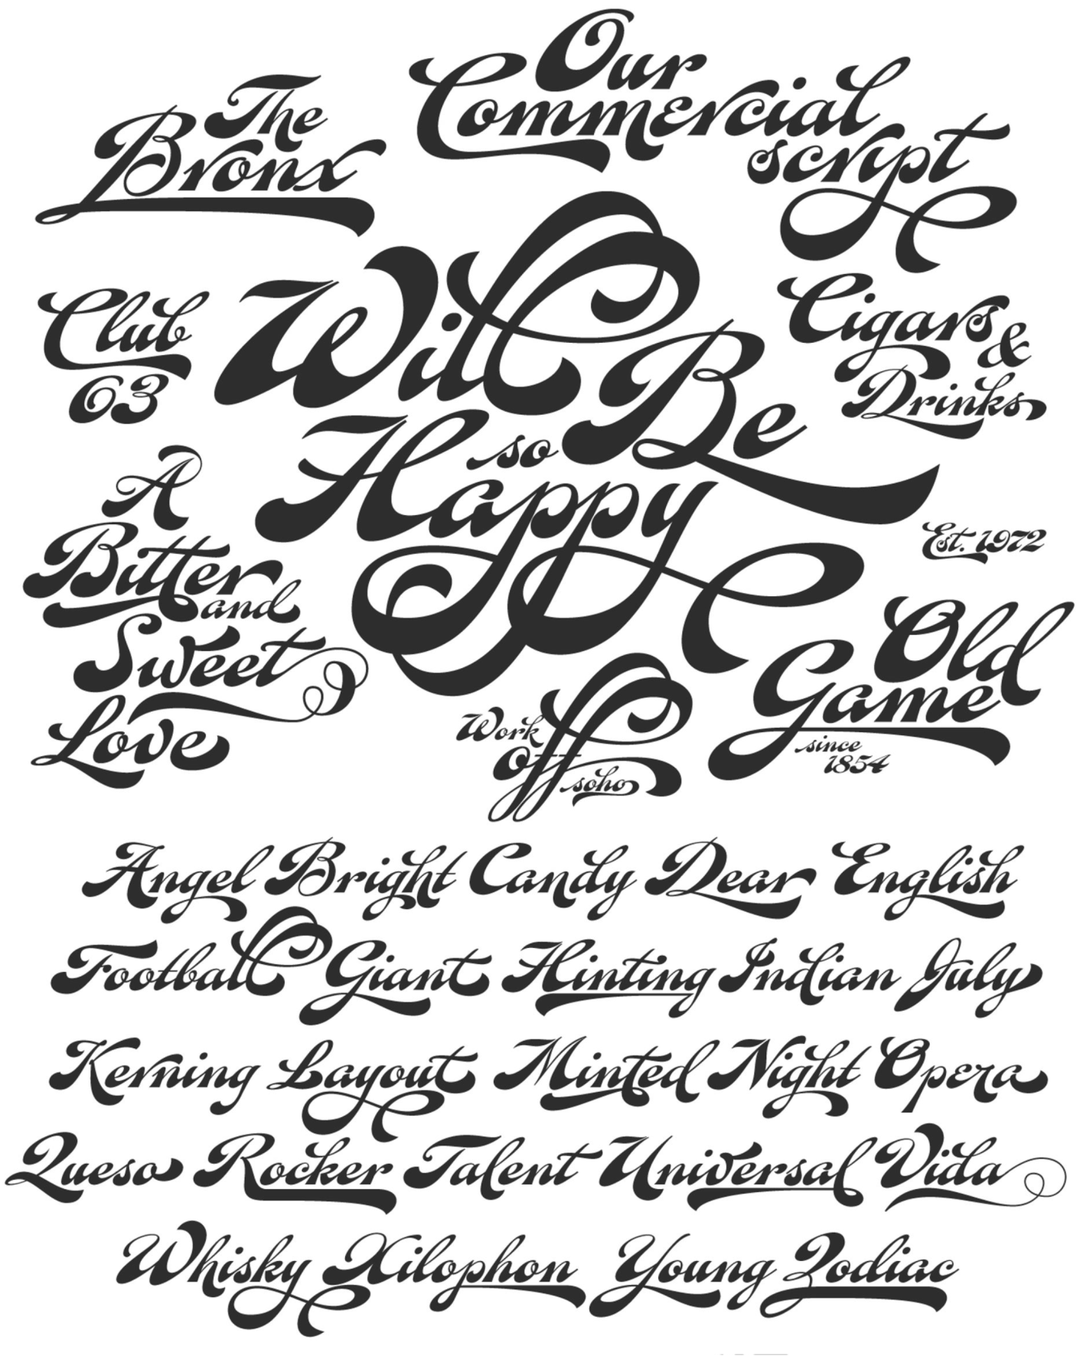 The
Bronx
Our
Commercial
script
Club
63
Will
Be
so
Happy
Cigars &
Drinks
Est. 1972
A
Bitter
and
Sweet
Love
Work
Off
soho
Old
Game
since
1854
Angel Bright Candy Dear English
Football Giant Hinting Indian July
Kerning Layout Minted Night Opera
Queso Rocker Talent Universal Vida
Whisky Xilophon Young Zodiac